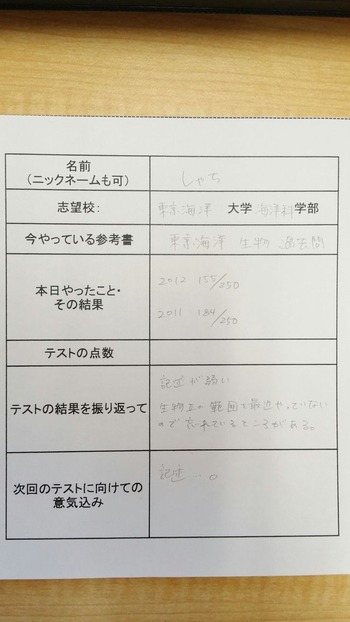 名前
(ニックネームも可)
しゃち
志望校:
東京海洋 大学 海洋科学部
今やっている参考書
東京海洋 生物 過去問
本日やったこと・
その結果
2012 155/250
2011 184/250
テストの点数
テストの結果を振り返って
記述が弱い
生物Iの範囲で最近やっていない
ので忘れているところがある。
次回のテストに向けての
意気込み
記述…。